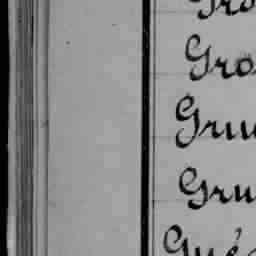 Gro
Gro
Gru
Gru
Gué